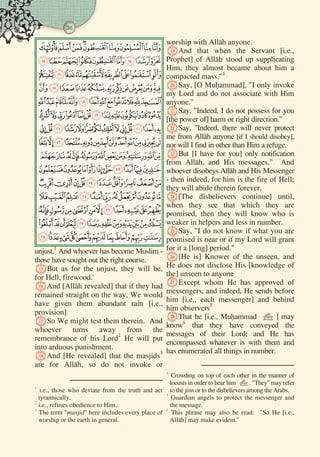 وَأَنَّا مِنَّا ٱلْمُسْلِمُونَ وَمِنَّا ٱلْقَٰسِطُونَ فَمَنْ أَسْلَمَ فَأُو۟لَٰٓئِكَ
تَحَرَّوْا۟ رَشَدًا ١٤ وَأَمَّا ٱلْقَٰسِطُونَ فَكَانُوا۟ لِجَهَنَّمَ حَطَبًا ١٥
وَأَلَّوِ ٱسْتَقَٰمُوا۟ عَلَى ٱلطَّرِيقَةِ لَأَسْقَيْنَٰهُم مَّآءً غَدَقًا ١٦ لِّنَفْتِنَهُمْ
فِيهِ وَمَن يُعْرِضْ عَن ذِكْرِ رَبِّهِۦ يَسْلُكْهُ عَذَابًا صَعَدًا ١٧ وَأَنَّ
ٱلْمَسَٰجِدَ لِلَّهِ فَلَا تَدْعُوا۟ مَعَ ٱللَّهِ أَحَدًا ١٨ وَأَنَّهُۥ لَمَّا قَامَ عَبْدُ ٱللَّهِ
يَدْعُوهُ كَادُوا۟ يَكُونُونَ عَلَيْهِ لِبَدًا ١٩ قُلْ إِنَّمَآ أَدْعُوا۟ رَبِّى وَلَآ أُشْرِكُ
بِهِۦٓ أَحَدًا ٢٠ قُلْ إِنِّى لَآ أَمْلِكُ لَكُمْ ضَرًّا وَلَا رَشَدًا ٢١ قُلْ إِنِّى لَن
يُجِيرَنِى مِنَ ٱللَّهِ أَحَدٌ وَلَنْ أَجِدَ مِن دُونِهِۦ مُلْتَحَدًا ٢٢ إِلَّا بَلَٰغًا
مِّنَ ٱللَّهِ وَرِسَٰلَٰتِهِۦ وَمَن يَعْصِ ٱللَّهَ وَرَسُولَهُۥ فَإِنَّ لَهُۥ نَارَ جَهَنَّمَ
خَٰلِدِينَ فِيهَآ أَبَدًا ٢٣ حَتَّىٰٓ إِذَا رَأَوْا۟ مَا يُوعَدُونَ فَسَيَعْلَمُونَ
مَنْ أَضْعَفُ نَاصِرًا وَأَقَلُّ عَدَدًا ٢٤ قُلْ إِنْ أَدْرِىٓ أَقَرِيبٌ
مَّا تُوعَدُونَ أَمْ يَجْعَلُ لَهُۥ رَبِّىٓ أَمَدًا ٢٥ عَٰلِمُ ٱلْغَيْبِ فَلَا
يُظْهِرُ عَلَىٰ غَيْبِهِۦٓ أَحَدًا ٢٦ إِلَّا مَنِ ٱرْتَضَىٰ مِن رَّسُولٍ فَإِنَّهُۥ
يَسْلُكُ مِنۢ بَيْنِ يَدَيْهِ وَمِنْ خَلْفِهِۦ رَصَدًا ٢٧ لِّيَعْلَمَ أَن قَدْ أَبْلَغُوا۟
رِسَٰلَٰتِ رَبِّهِمْ وَأَحَاطَ بِمَا لَدَيْهِمْ وَأَحْصَىٰ كُلَّ شَىْءٍ عَدَدًا ٢٨
unjust.¹ And whoever has become Muslim -
those have sought out the right course.
But as for the unjust, they will be,
for Hell, firewood.'
And [Allāh revealed] that if they had
remained straight on the way, We would
have given them abundant rain [i.e.,
provision]
So We might test them therein. And
whoever turns away from the
remembrance of his Lord² He will put
into arduous punishment.
And [He revealed] that the masjids³
are for Allāh, so do not invoke or
¹ i.e., those who deviate from the truth and act
tyrannically.
² i.e., refuses obedience to Him.
³ The term "masjid" here includes every place of
worship or the earth in general.
worship with Allāh anyone.
And that when the Servant [i.e.,
Prophet] of Allāh stood up supplicating
Him, they almost became about him a
compacted mass."⁴
Say, [O Muḥammad], "I only invoke
my Lord and do not associate with Him
anyone."
Say, "Indeed, I do not possess for you
[the power of] harm or right direction."
Say, "Indeed, there will never protect
me from Allāh anyone [if I should disobey],
nor will I find in other than Him a refuge.
But [I have for you] only notification
from Allāh, and His messages." And
whoever disobeys Allāh and His Messenger
- then indeed, for him is the fire of Hell;
they will abide therein forever.
[The disbelievers continue] until,
when they see that which they are
promised, then they will know who is
weaker in helpers and less in number.
Say, "I do not know if what you are
promised is near or if my Lord will grant
for it a [long] period."
[He is] Knower of the unseen, and
He does not disclose His [knowledge of
the] unseen to anyone
Except whom He has approved of
messengers, and indeed, He sends before
him [i.e., each messenger] and behind
him observers⁵
That he [i.e., Muḥammad ﷺ] may
know⁶ that they have conveyed the
messages of their Lord; and He has
encompassed whatever is with them and
has enumerated all things in number.
⁴ Crowding on top of each other in the manner of
locusts in order to hear him ﷺ. "They" may refer
to the jinn or to the disbelievers among the Arabs.
⁵ Guardian angels to protect the messenger and
the message.
⁶ This phrase may also be read: "So He [i.e.,
Allāh] may make evident."